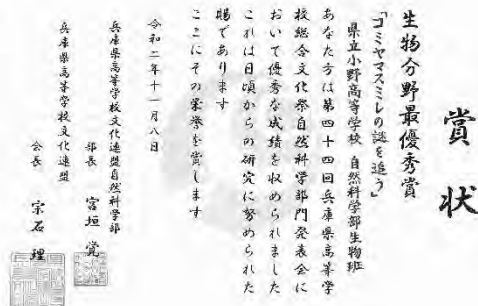 賞状
生物分野最優秀賞
「コミヤマスミレの謎を追う」
県立小野高等学校 自然科学部生物班
あなた方は第四十四回兵庫県高等学
校総合文化祭自然科学部門発表会に
おいて優秀な成績を収められました
これは日頃からの研究に努められた
賜であります
ここにその栄誉を賞します
令和二年十一月八日
兵庫県高等学校文化連盟自然科学部
部長 宮垣 覚
兵庫県高等学校文化連盟
会長 宗石 理